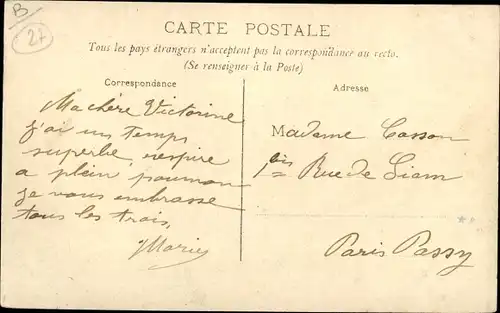 B
27
CARTE POSTALE
Tous les pays étrangers n'acceptent pas la correspondance au recto.
(Se renseigner à la Poste)
Correspondance
Adresse
Ma chère Victorine
j'ai un temps
superbe, respire
a plein poumon
je vous embrasse
tous les trois,
Marie
Madame Casson
1 bis Rue de Siam
Paris Passy